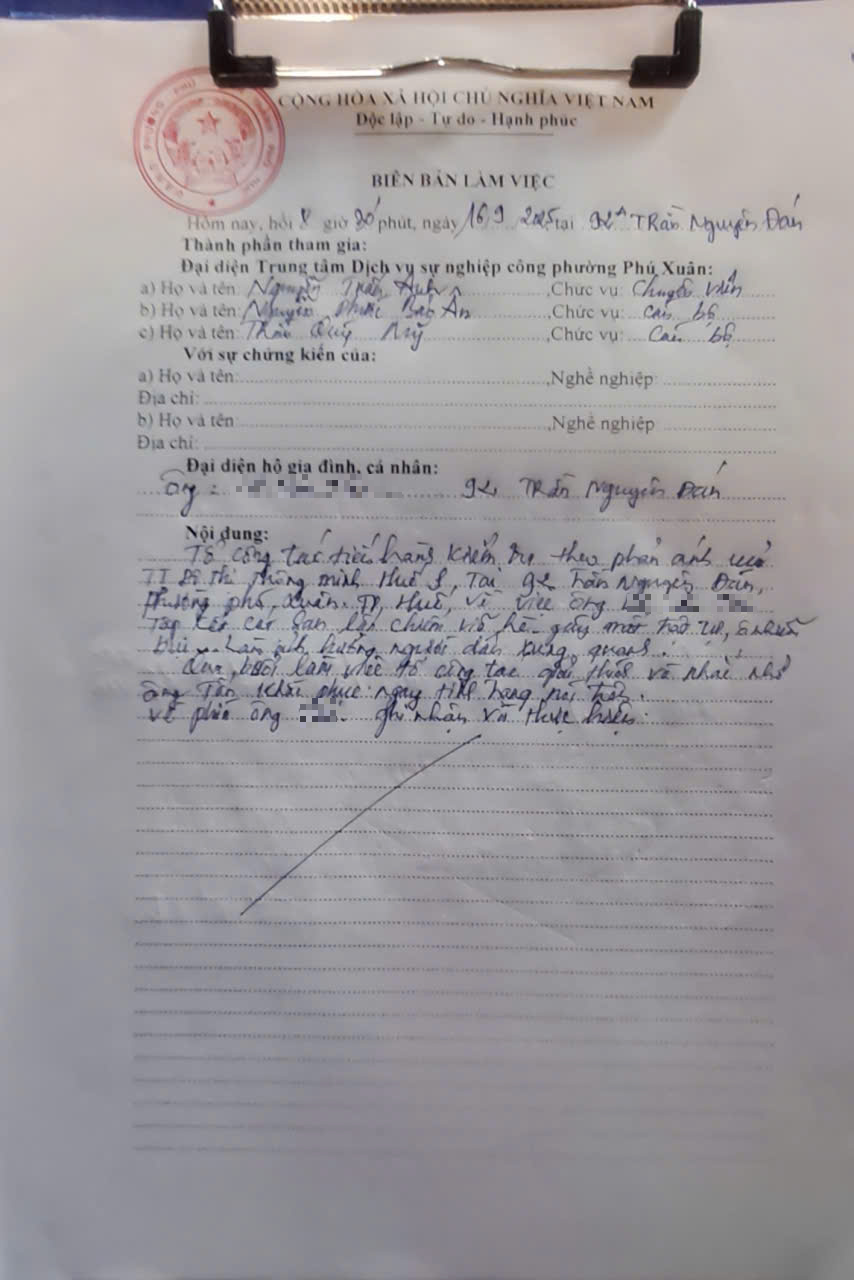 CỘNG HÒA XÃ HỘI CHỦ NGHĨA VIỆT NAM
Độc lập - Tự do - Hạnh phúc
BIÊN BẢN LÀM VIỆC
Hôm nay, hồi 8 giờ 30 phút, ngày 16 9 2025 tại 92 Trần Nguyên Đán
Thành phần tham gia:
Đại diện Trung tâm Dịch vụ sự nghiệp công phường Phú Xuân:
a) Họ và tên: Nguyễn Trần ,Chức vụ: Chuyên viên
b) Họ và tên: Nguyễn Phước Bảo Ân ,Chức vụ: Cán bộ
c) Họ và tên: Trần Quý Mỹ ,Chức vụ: Cán bộ
Với sự chứng kiến của:
a) Họ và tên: ,Nghề nghiệp:
Địa chỉ:
b) Họ và tên ,Nghề nghiệp
Địa chỉ:
Đại diện hộ gia đình, cá nhân:
Ông : 92 Trần Nguyên Đán
Nội dung:
Tổ công tác tiến hành kiểm tra theo phản ánh của
TT Đô thị thông minh Huế S, Tại 92 Trần Nguyên Đán,
Phường phú Xuân. TP Huế, về việc ông
Tập kết cát sạn lấn chiếm vỉa hè gây mất trật tự,
bụi ảnh hưởng người dân xung quanh.
Qua buổi làm việc tổ công tác giải thích và nhắc nhở
ông khôi phục ngay tình trạng nói trên.
về phía ông ghi nhận và thực hiện.